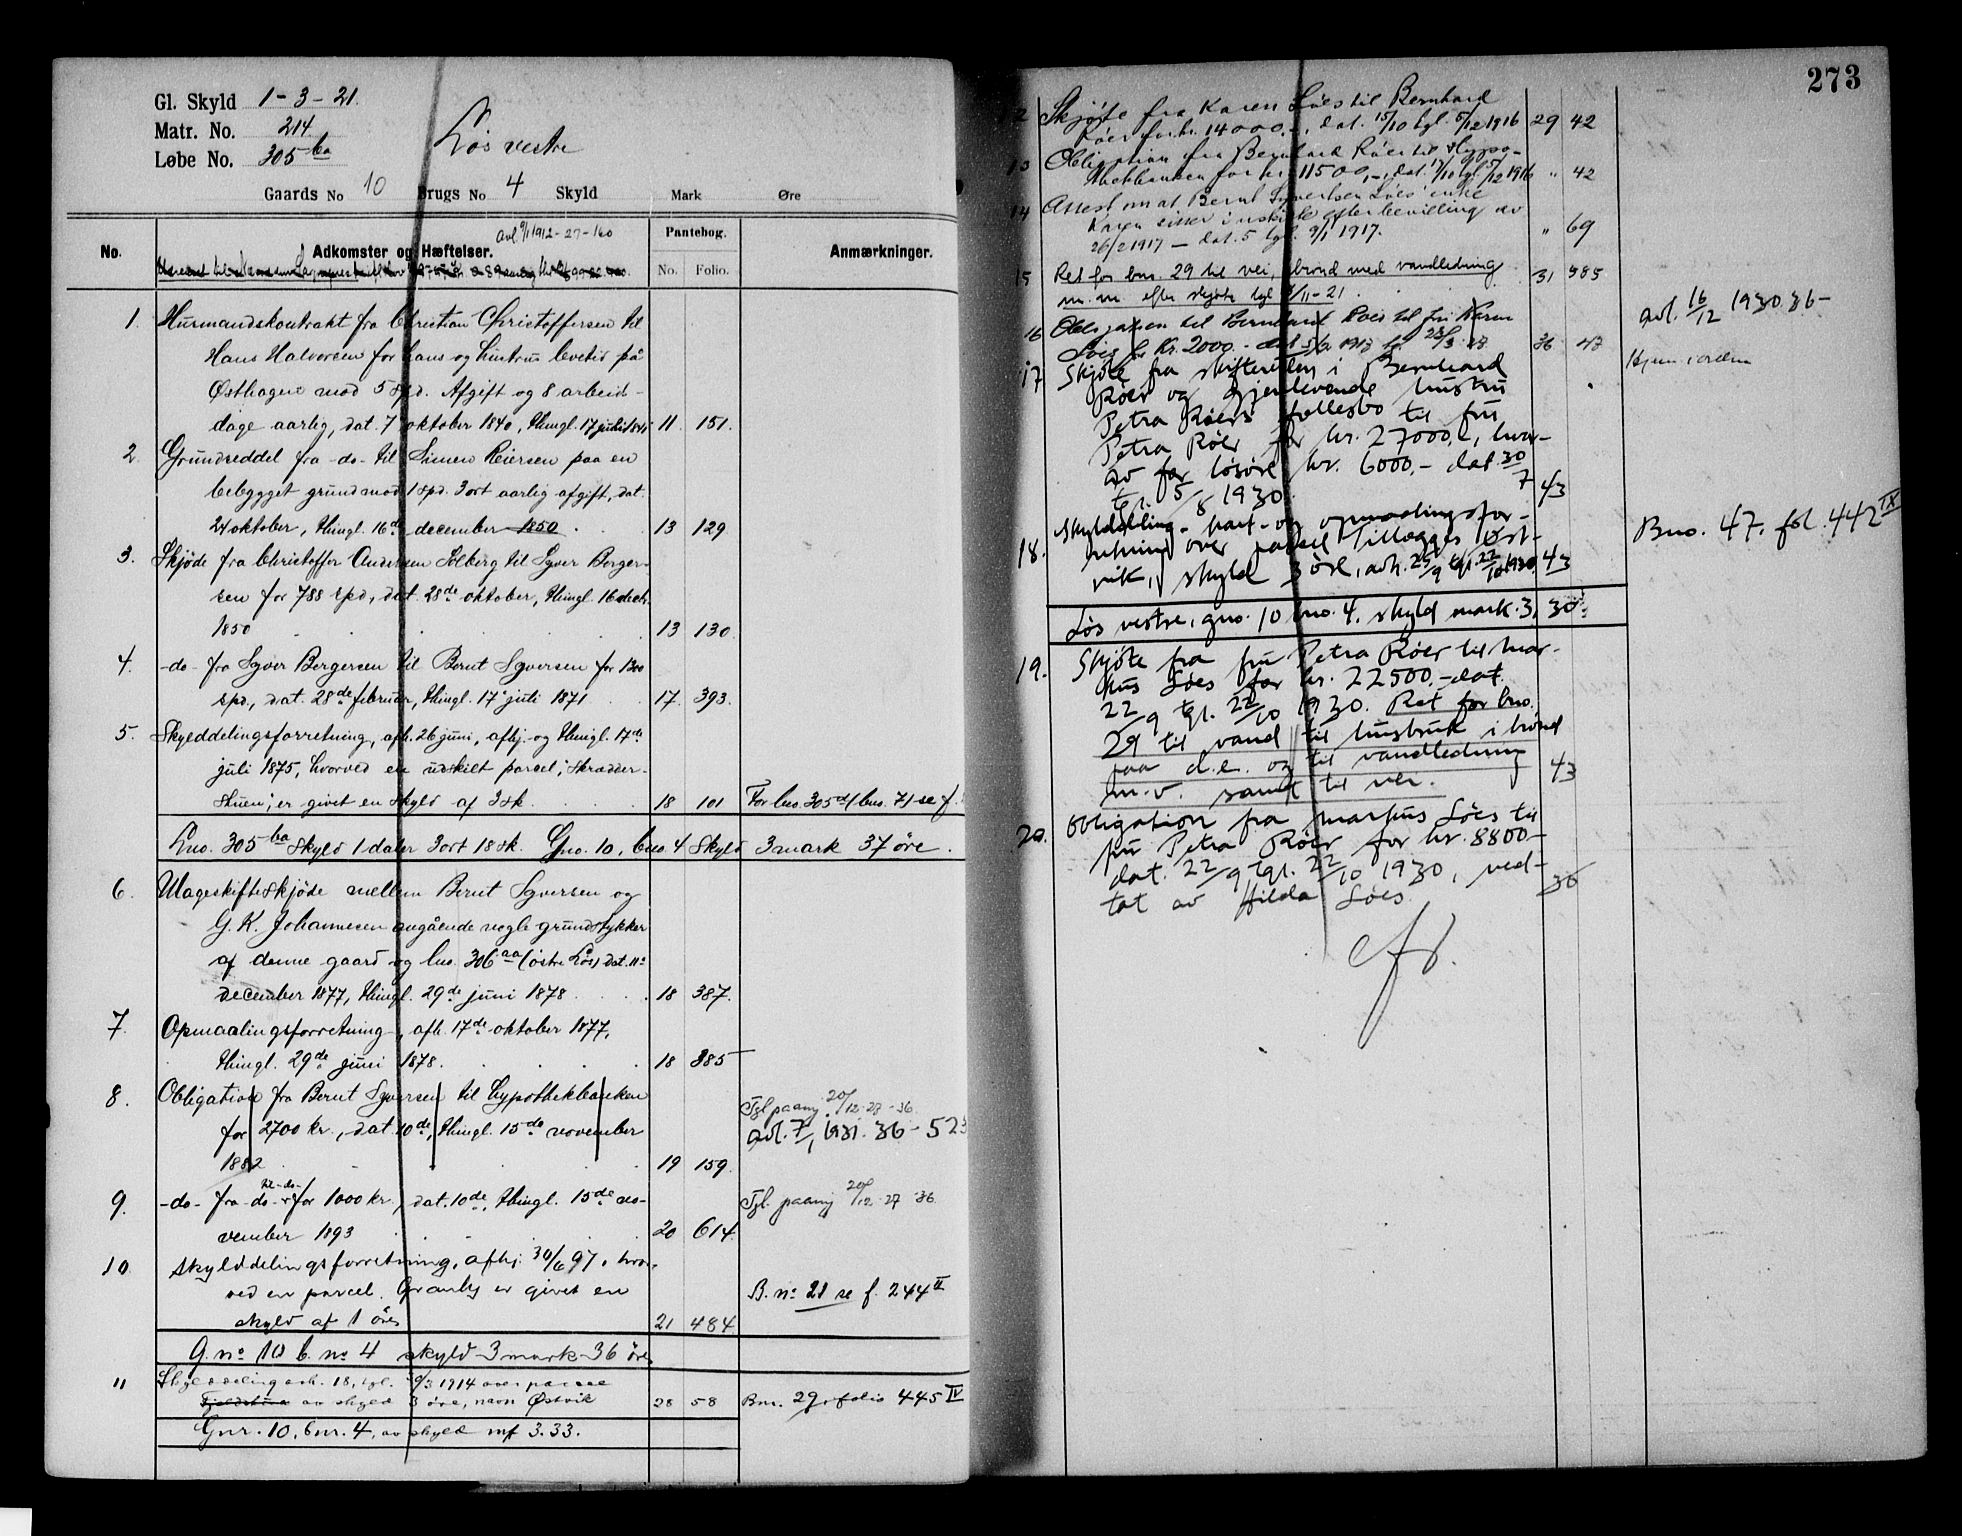 Gl. Skyld 1 - 3 - 21.
Matr. No. 214
Løbe No. 305 ba
Løs vestre
Gaards No 10 Brugs No 4 Skyld Mark Øre
No. Adkomster og Hæftelser. Pantebog. Anmærkninger.
avl. 9/1 1912 - 27 - 160
No. Folio.
1. Husmandskontrakt fra Christian Christoffersen til
Hans Halvorsen for hans og hustrus levetid på
Østhagen mod 5 spd. Afgift og 8 arbeids-
dage aarlig, dat. 7 oktober 1840, thingl. 17 juli 1841 11. 151.
2. Grundseddel fra -do- til Simen Reiersen paa en
bebygget grund mod 1 spd. 3 ort aarlig afgift, dat.
24 oktober, thingl. 16de december 1850 13 129
3. Skjøde fra Christoffer Andersen Solberg til Syver Berger-
sen for 788 spd, dat. 28de oktober, thingl. 16 decbr.
1850 13 130.
4. -do- fra Syver Bergersen til Bernt Syversen for 1300
spd., dat. 28de februar, thingl. 17 juli 1871 17. 393.
5. Skylddelingsforretning, afh. 26 juni, afhj. og thingl. 17de
juli 1875, hvorved en udskilt parcel, "Skrædder-
stuen", er givet en skyld af 3 sk. 18 101 For lno. 305 d/ bno. 71 se f.
Lno. 305 ba Skyld 1 daler 3 ort 18 sk. Gno. 10, bno. 4 Skyld 3 mark 37 øre.
6. Mageskifteskjøde mellem Bernt Syversen og
G. K. Johannesen angående nogle grundstykker
af denne gaard og lno. 306 aa (østre Løs) dat. 11te
december 1877, thingl. 29de juni 1878 18 387.
7. Opmaalingsforretning, afh. 17de oktober 1877,
thingl. 29de juni 1878. 18 385
8. Obligation fra Bernt Syversen til hypothekbanken
for 2700 kr., dat. 10de, thingl. 15de november
1882 19 159.
Tgl. paany 20/12 27 - 36.
avl. 7/1 1931. 36 - 523
9. -do- fra -do- til -do- for 1000 kr., dat. 10de, thingl. 15de no-
vember 1893 20 614.
Tgl. paany 20/12 27 36
10 Skylddelingsforretning, afhj. 30/6 97, hvor-
ved en parcel, Granly er givet en
skyld af 1 øre 21 484 B. no 21 se f. 244 II
G. no 10 b. no 4 skyld 3 mark 36 øre
11 Skylddeling avh. 18, tgl. 1914 over parcel
av skyld 3 øre, navn Østvik 28 58 Bnr. 29, folio 445 IV
Gnr. 10, bnr. 4, av skyld mk 3.33.
273
12 Skjøte fra Karen Løes til Bernhard
Røer for kr. 14000.-, dat. 15/10 tgl. 5/12 1916 29 42
13 Obligation fra Bernhard Røer til Hypo-
thekbanken for kr. 11500,-, dat. 17/10 tgl. 5/12 1916 " 42
14 Attest om at Bernt Syvertsen Løes' enke
Karen sitter i uskifte efter bevilling av
26/2 1917 - dat. 5 tgl. 9/1 1917. " 69
15 Ret for bnr. 29 til vei, brønd med vandledning
m. m. efter skjøte tgl. 8/11 - 21 31 585
16 Obligasjon til Bernhard Røer til fru Karen
Løes for kr. 2000.- 36 47
avl. 16/12 1930 36-
17 Skjøte fra skifteretten i Bernhard
Røer og gjenlevende hustru
Petra Røers fællesbo til fru
Petra Røer for kr. 27000,-, hvor-
av for løsøre kr. 6000,- dat. 30/7
tgl. 5/8 1930 43
18. Skyldeling- kart- og opmaalingsfor-
retning over parsel "Tillegges Øst-
vik", skyld 3 øre, avh. 25/9 tgl. 22/10 1930. 43
Bno. 47, fol. 442 IX
Løs vestre, gno. 10 bno. 4, skyld mark. 3,30
19. Skjøte fra fru Petra Røer til Mar-
kus Løes for kr. 22500,- dat.
22/9 tgl. 22/10 1930. Ret for bno.
29 til vand til husbruk i brønd
paa d.e. og til vandledning
m.v. samt til vei. 43
20. Obligation fra Markus Løes til
fru Petra Røer for kr. 8800-
dat. 22/9 tgl. 22/10 1930, ved-
tat av Hilda Løes 36